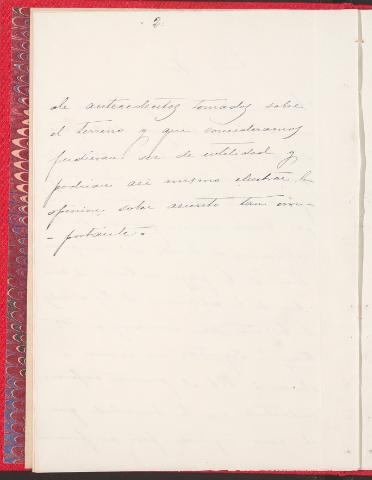 2.
de antecedentes tomados sobre
el terreno y que consideramos
pudieran ser de utilidad y
podrian asi mismo ilustrar la
opinion, sobre asunto tan im-
- portante.